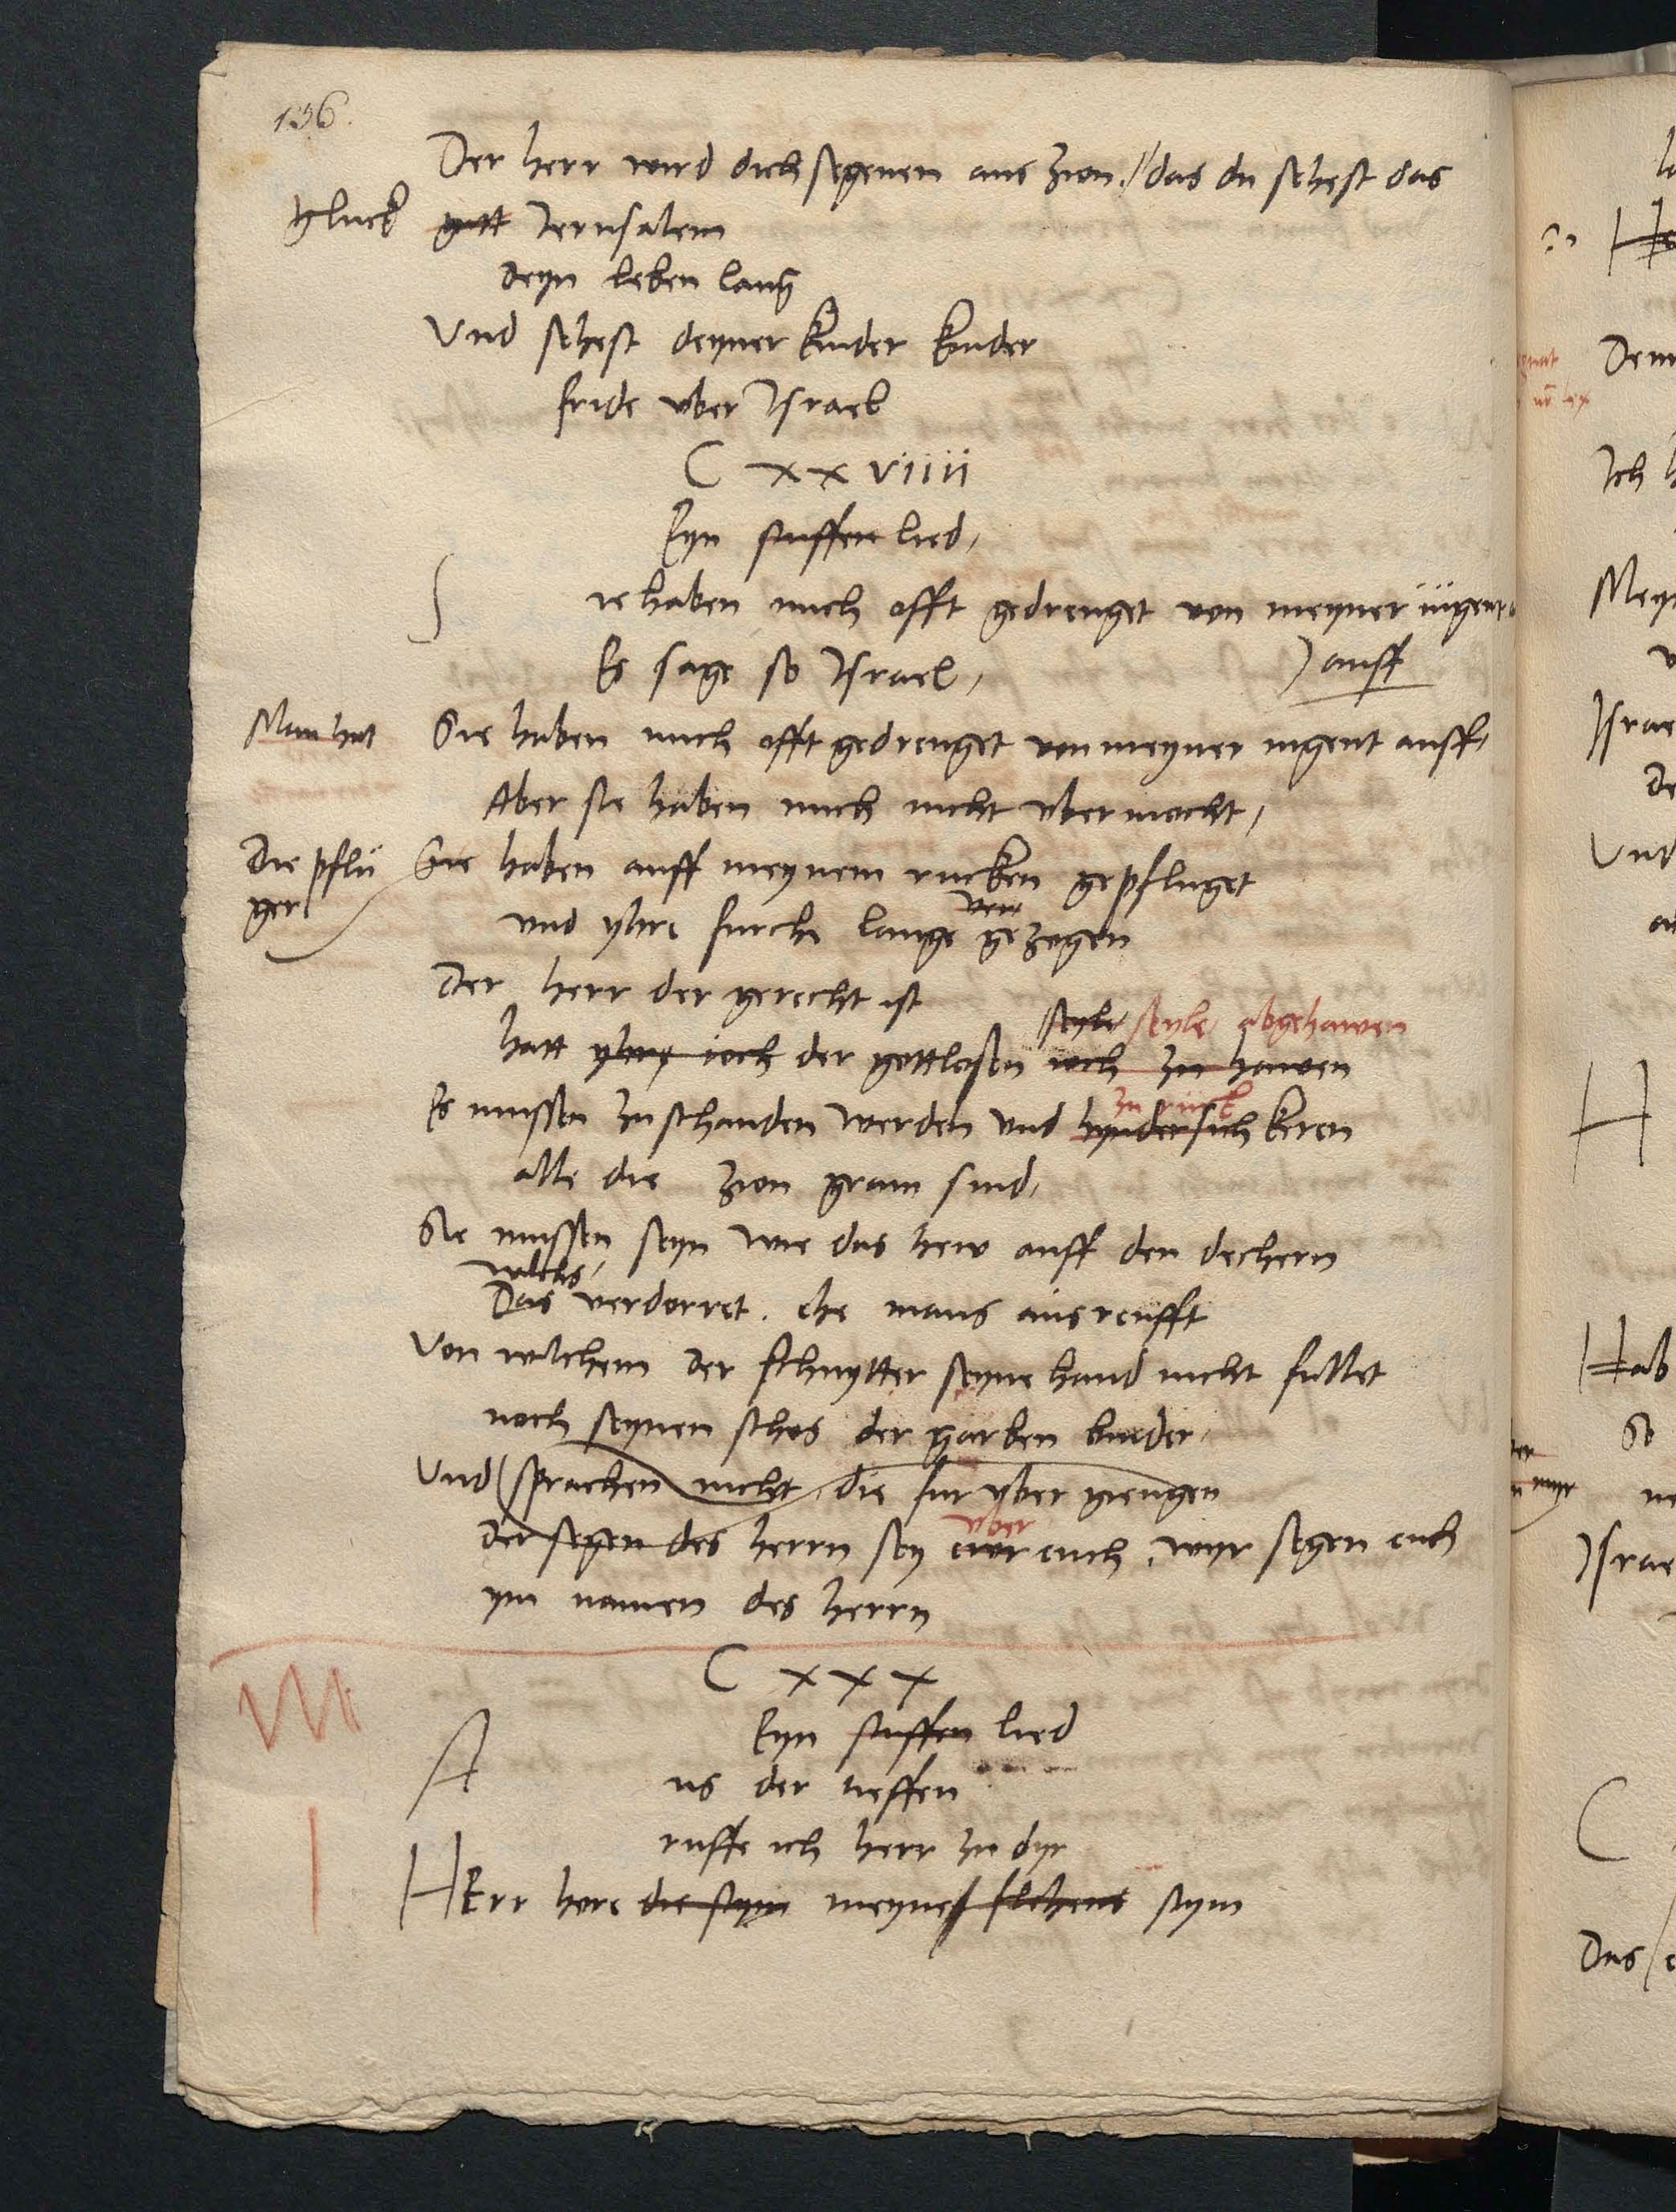 136.
Der herr wird dich segenen aus Zion // das du sehest das
gluck gutt Jerusalem
deyn leben lang
Und sehest deyner kinder kinder
fride uber Israel
C xx viiii
Eyn stuffen lied,
S ie haben mich offt gedrenget von meyner iugent
Es sage so Israel, ) auff
Man hat Sie haben mich offt gedrenget von meyner iugent auff,
Aber sie haben mich nicht ubermocht,
Die pflu Sie haben auff meynem rucken gepfluget
ger ver
und yhre furche lange gezogen
Der herr der gerecht ist
seyle, seyle, abgehawen
hatt yhre ioch der gottlosen ioch zu hawen
zu ruck
Es mussen zu schanden werden und hyndersich keren
alle die Zion gram sind,
Sie mussen seyn wie das hew auff den dechern
wilchs,
Das verdorret. ehe mans ausreufft
Von wilchem der schnytter seyne hand nicht fullet
noch seynen schos der garben binder,
Und sprachen nicht, die fur uber giengen
uber
der segen des herrn sey euch, wyr segen euch
ym namen des herrn
C x x x
Eyn stuffen lied
A us der tieffen
ruffe ich herr zu dyr
HErr hore die stym meynes flehens stym